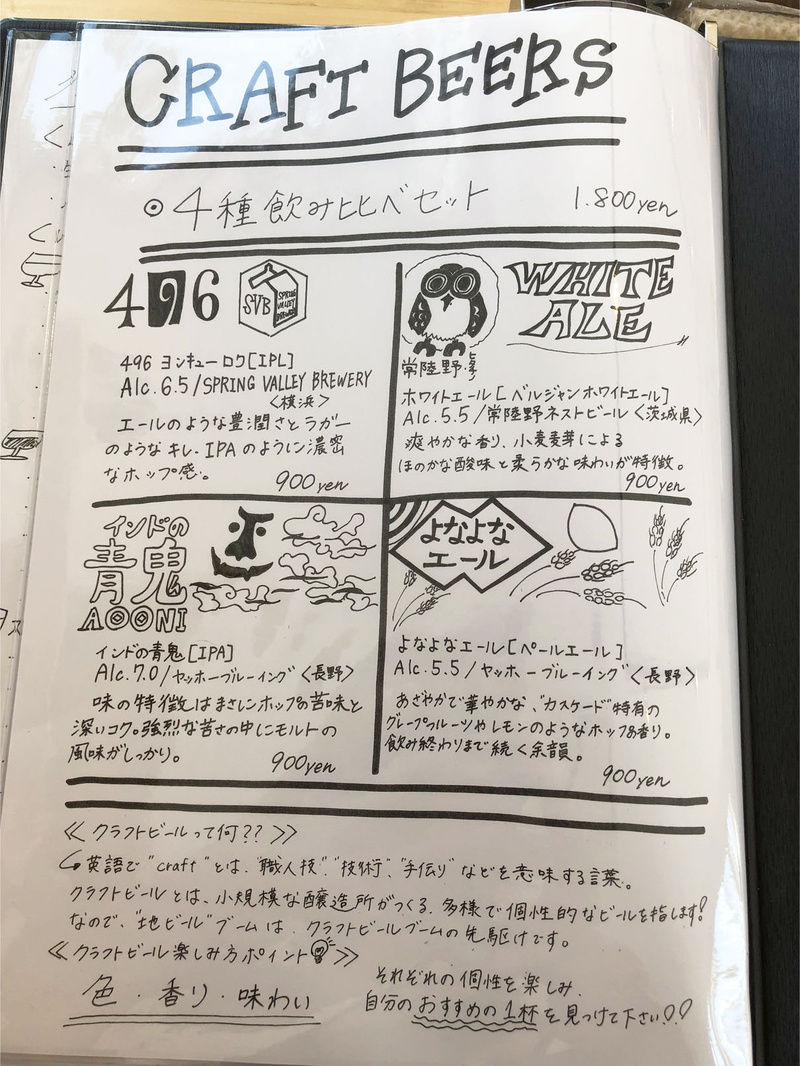 CRAFT BEERS
◉ 4種飲み比べセット 1.800yen
496
SVB SPRING VALLEY BREWERY
496 ヨンキューロク[IPL]
Alc.6.5/SPRING VALLEY BREWERY
〈横浜〉
エールのような豊潤さとラガー
のようなキレ、IPAのように濃密
なホップ感。
900yen
WHITE
ALE
常陸野
ホワイトエール[ベルジャンホワイトエール]
Alc.5.5/常陸野ネストビール〈茨城県〉
爽やかな香り、小麦麦芽による
ほのかな酸味と柔らかな味わいが特徴。
900yen
インドの
青鬼
AOONI
インドの青鬼[IPA]
Alc.7.0/ヤッホーブルーイング〈長野〉
味の特徴はまさしくホップの苦味と
深いコク。強烈な苦さの中にモルトの
風味がしっかり。
900yen
よなよな
エール
よなよなエール[ペールエール]
Alc.5.5/ヤッホーブルーイング〈長野〉
あざやかで華やかな、"カスケード"特有の
グレープフルーツやレモンのようなホップの香り。
飲み終わりまで続く余韻。
900yen
≪クラフトビールって何??≫
↪英語で"craft"とは、"職人技"、"技術"、"手伝り"などを意味する言葉。
クラフトビールとは、小規模な醸造所がつくる、多様で個性的なビールを指します!
なので、"地ビール"ブームは、クラフトビールブームの先駆けです。
≪クラフトビール楽しみ方ポイント≫
色・香り・味わい
それぞれの個性を楽しみ、
自分のおすすめの1杯を見つけて下さい!!